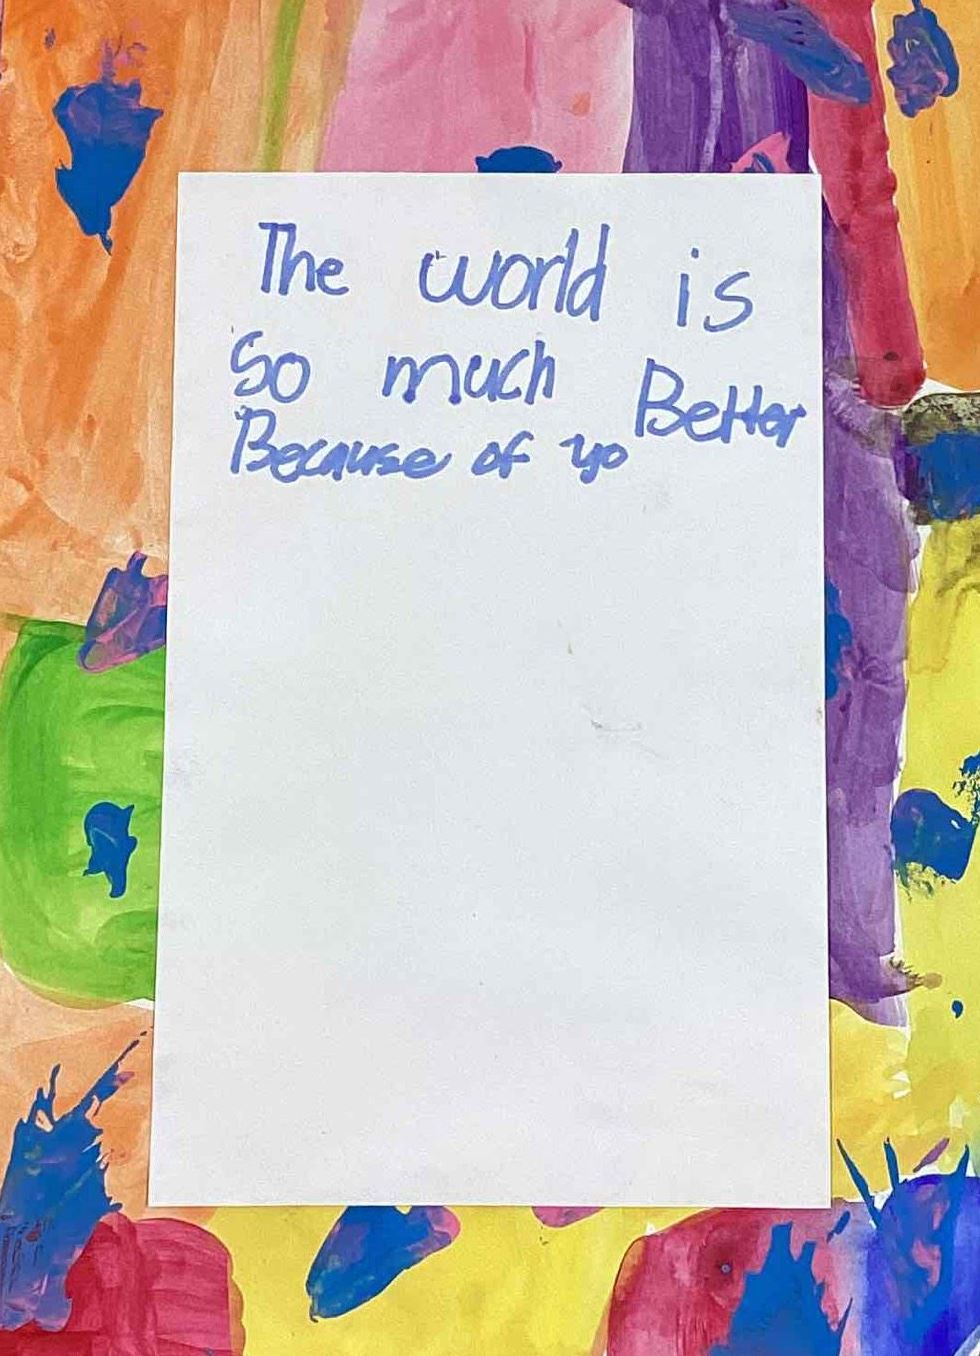 The world is
So much Better
Because of yo